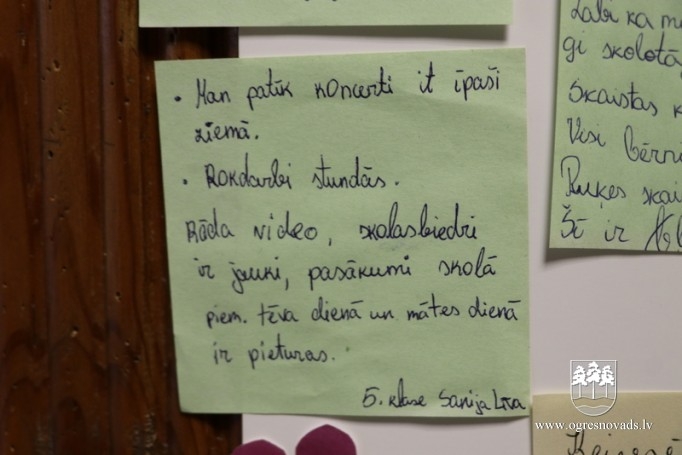 • Man patīk koncerti it īpaši
ziemā.
• Rokdarbi stundās.
Rāda video, skolasbiedri
ir jauki, pasākumi skolā
piem. tēva dienā un mātes dienā
ir pieturas.
5. klase Sanija Līva
Labi ka
gi skolotāj
Skaistas k
Visi bērni
Ruķes skai
Šī ir
www.ogresnovads.lv